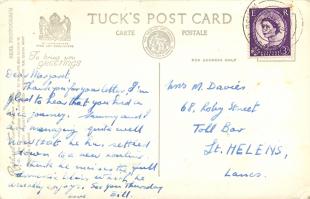 TUCK'S POST CARD
CARTE POSTALE
REAL PHOTOGRAPH
To bring you
GREETINGS
FOR ADDRESS ONLY
Dear Margaret,
Thank you for your letter, I'm
glad to hear that you had a
nice journey. Sammy and I
are managing quite well
now that he has settled
down to a new routine,
I think he misses the
domestic life, which he
already enjoys. See you Thursday
love Bill.
Mrs M. Davies
68, Roby Street
Toll Bar
St. HELENS,
Lancs.